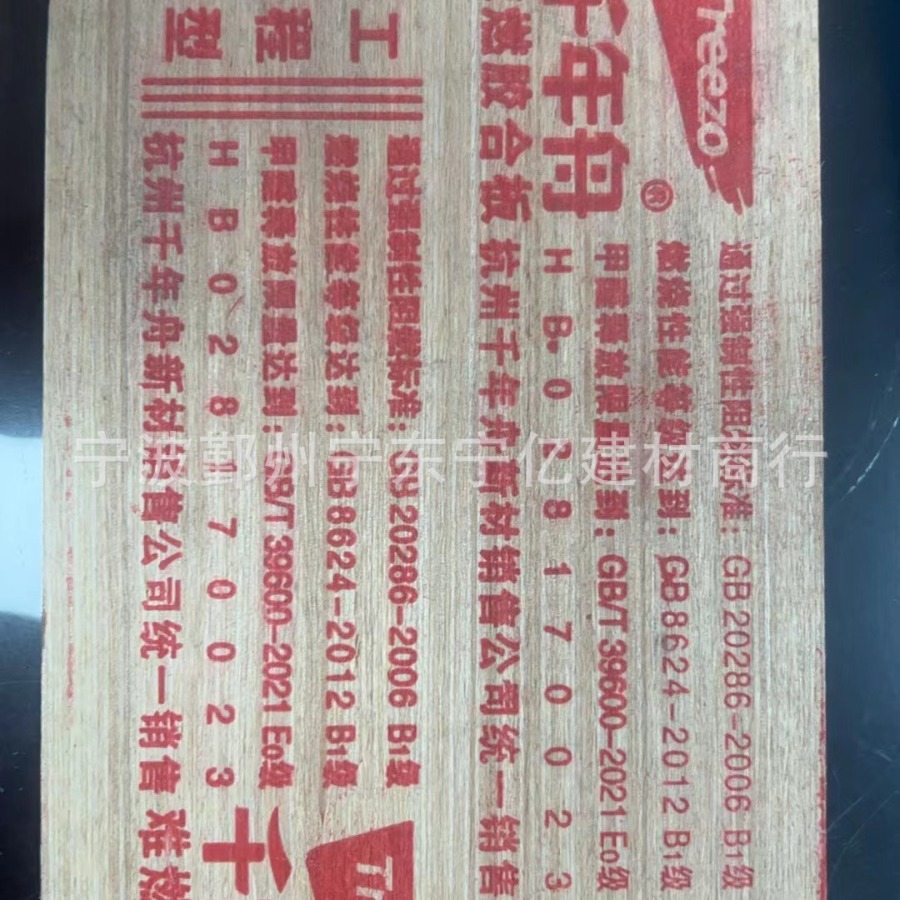 Treezo
千年舟®
燃胶合板
通过强制性阻燃标准：GB20286-2006 B1级
燃烧性能等级达到：GB8624-2012 B1级
甲醛释放限量达到：GB/T39600-2021 E0级
HB028170023
杭州千年舟新材销售公司统一销售
工程型
通过强制性阻燃标准：GB20286-2006 B1级
燃烧性能等级达到：GB8624-2012 B1级
甲醛释放限量达到：GB/T39600-2021 E0级
HB028170023
杭州千年舟新材销售公司统一销售
千
难燃
宁波鄞州宁东宁亿建材商行